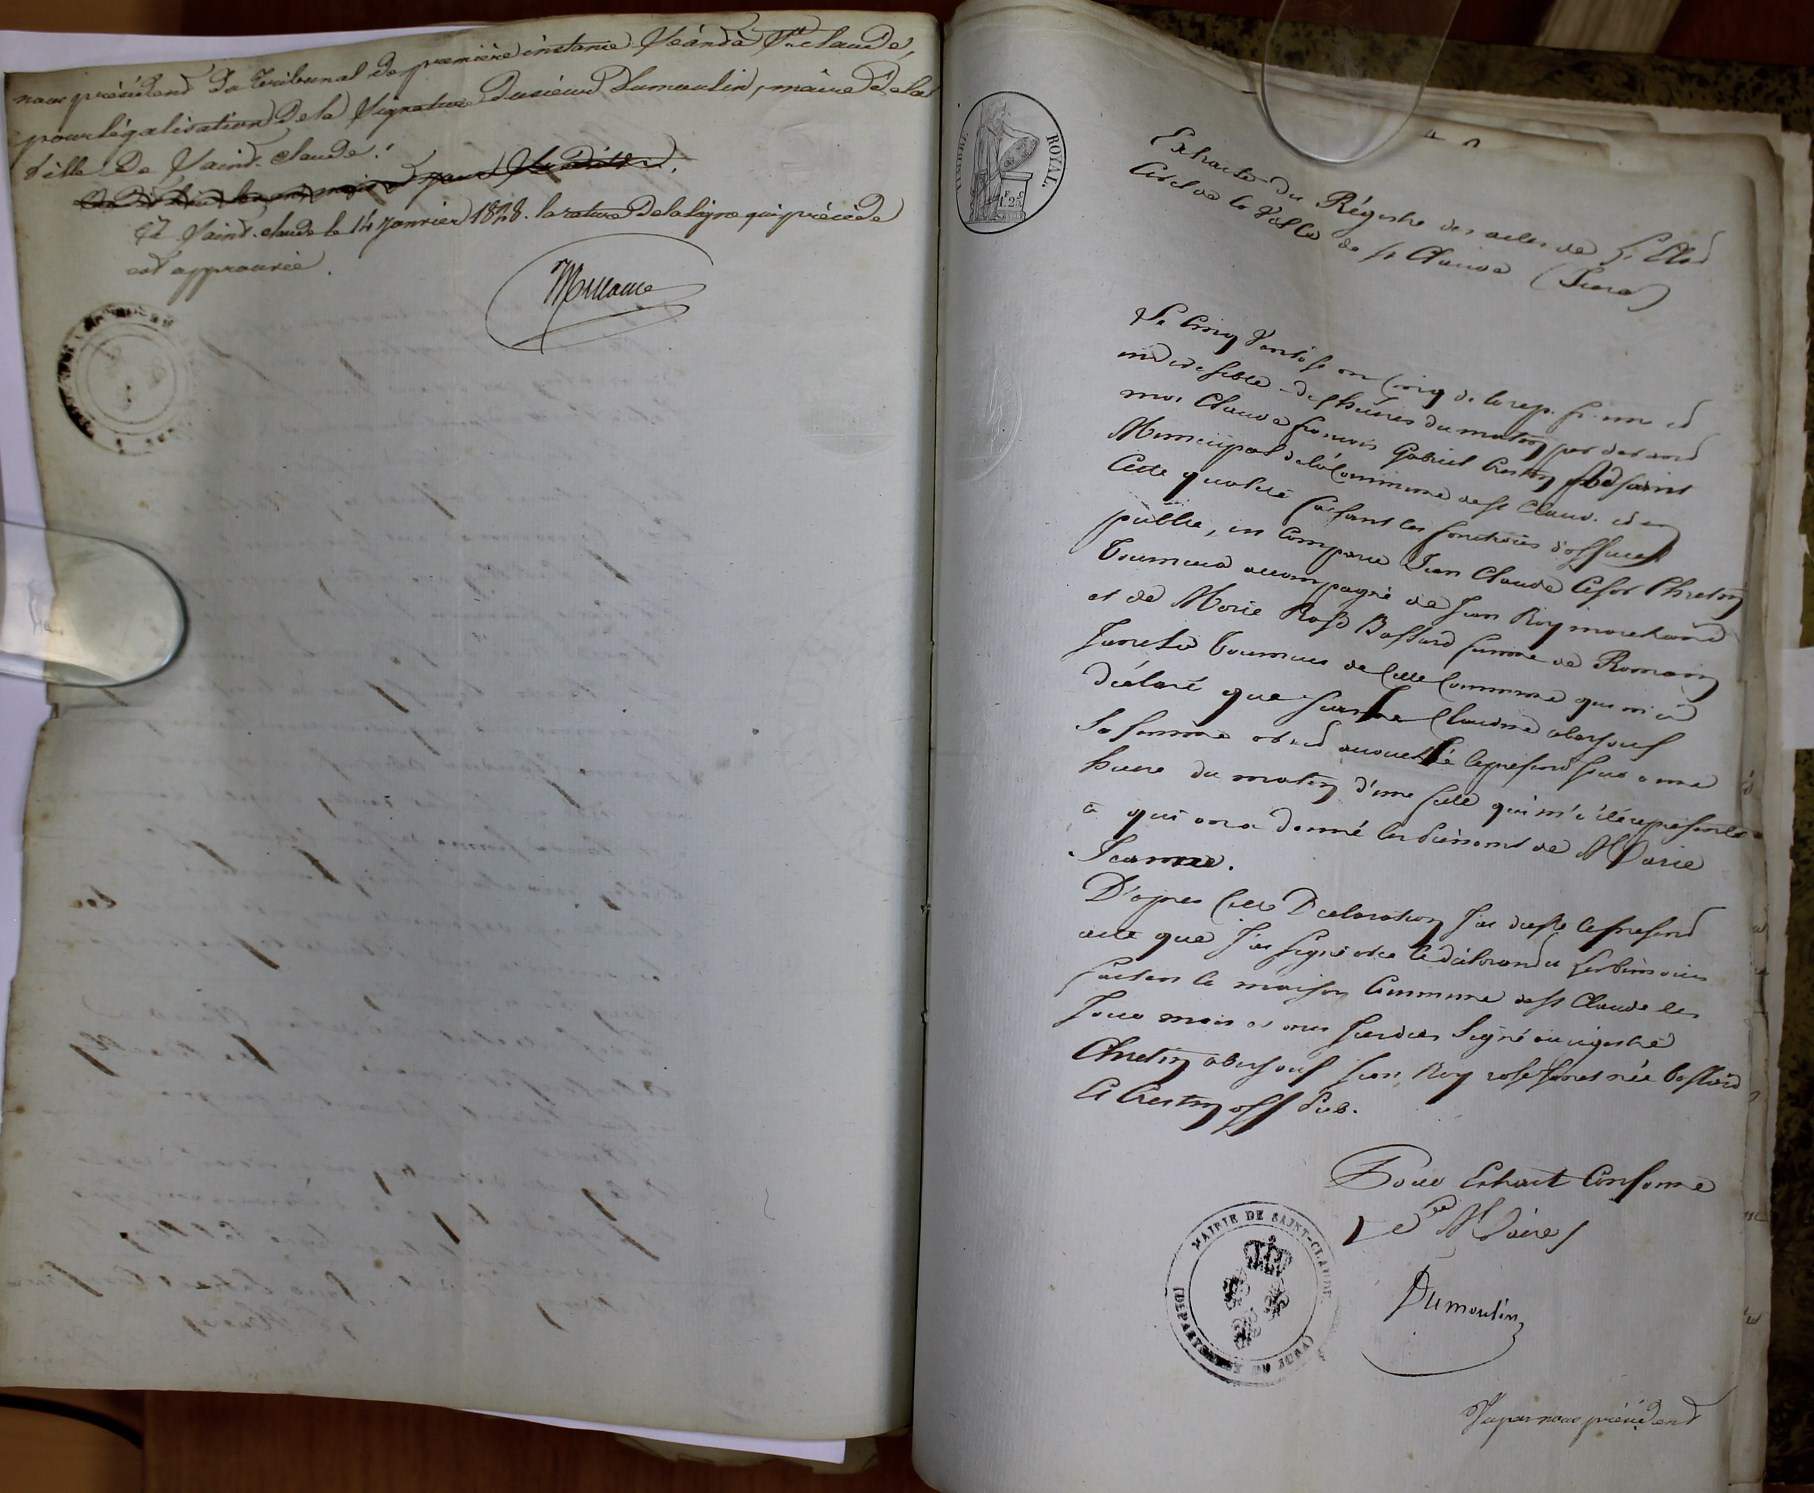 nous président du tribunal de première instance séant à St. claude,
pour légalisation de la signature du sieur Dumoulin, maire de la
ville de Saint-claude.
à Saint-claude le 14 janvier 1828. la rature de la ligne qui précède
est approuvée.
TIMBRE ROYAL
Extrait du Régistre des actes de L'Etat
Civil de la Ville de St Claude (Jura)
Le Cinq Ventôse an Cinq de la rep. fr. une et
indivisible dix heures du matin par devant
moi Claude françois Gabriel Crestin adjoint
Municipal de la Commune de St Claude et en
Cette qualité faisant les fonctions d'officier
public, est Comparu Jean Claude César Chretin
Tourneur accompagné de Jean Roy marchand
et de Marie Rose Bassard femme de Romain
Janet Tourneur de Cette Commune qui m'a
déclaré que Jeanne Claudine abeysouf
Sa femme est accouchée le présent jour a une
heure du matin d'une fille qui m'a été représentée
a qui on a donné les Prénoms de Marie
Jeanne.
D'après Cette Déclaration J'ai dressé le présent
acte que J'ai signé avec le déclarant et les témoins
fait en la maison Commune de St Claude les
Jour mois et an susdits Signé au régistre
Chretin abeysouf Jean Roy rose Janet née bassard
et Crestin off Pub.
Pour Extrait Conforme
Le Maire
Dumoulin
MAIRIE DE SAINT-CLAUDE
(DÉPARTEMENT DU JURA)
Vu par nous président